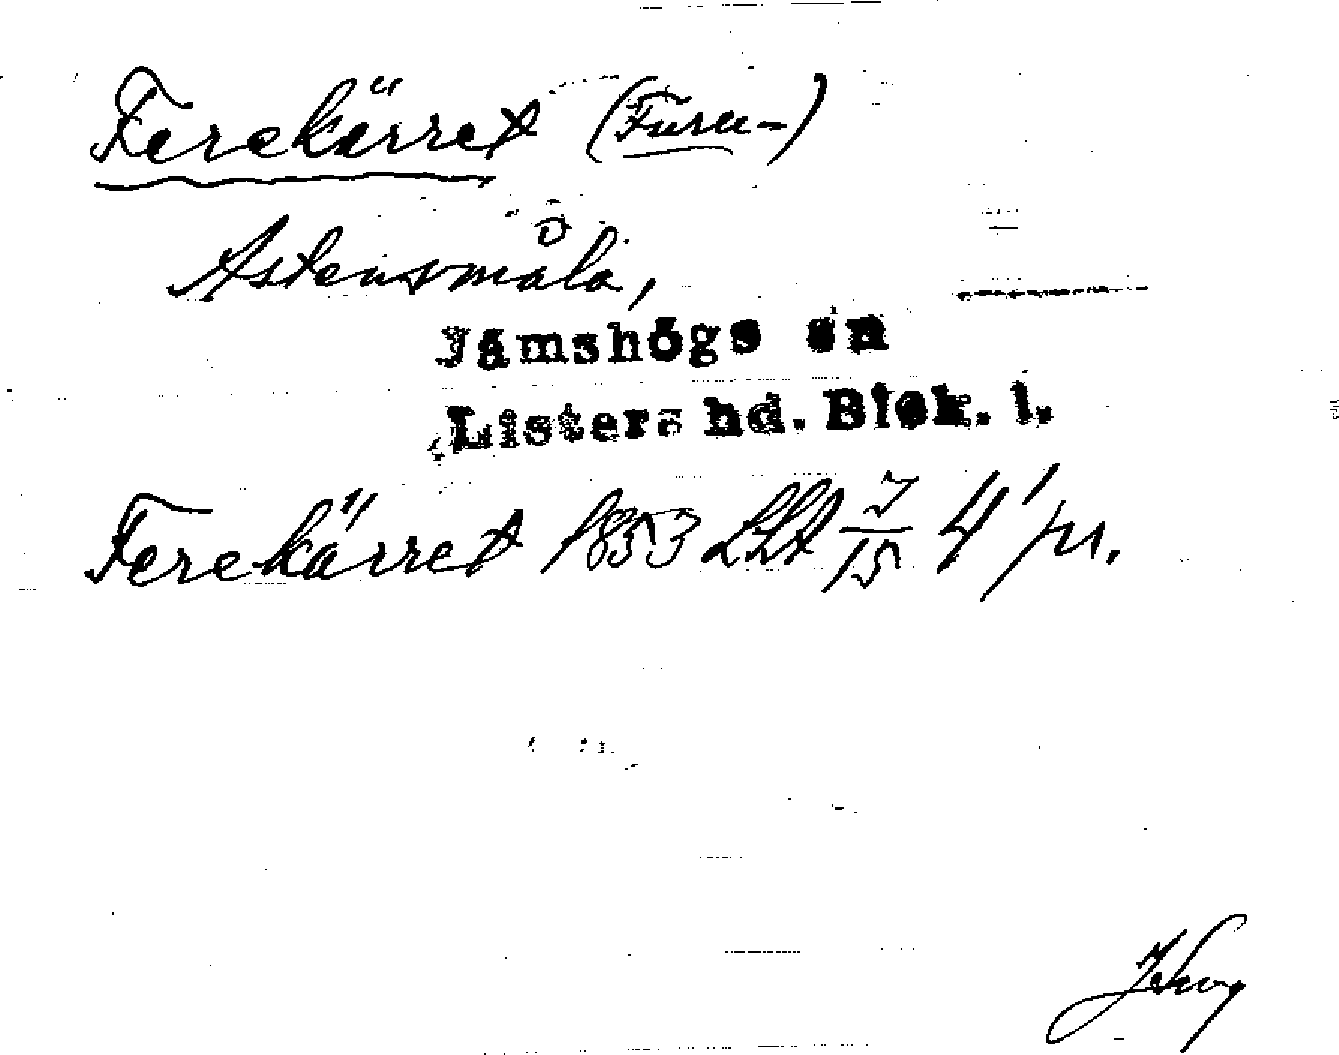 Ferekärret (Furu-)
Astensmåla,
Jämshögs sn
Listers hd. Blek. l.
Ferekärret 1853 LLA 7/15 4 / pr.